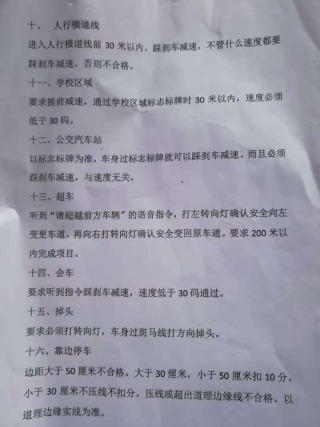 十、 人行横道线
进入人行横道线前 30 米以内，踩刹车减速，不管什么速度都要
踩刹车减速，否则不合格。
十一、学校区域
要求提前减速，通过学校区域标志标牌时 30 米以内，速度必须
低于 30 码。
十二、公交汽车站
以标志标牌为准，车身过标志标牌就可以踩刹车减速。而且必须
踩刹车减速，与速度无关。
十三、超车
听到“请超越前方车辆”的语音指令，打左转向灯确认安全向左
变更车道。再向右打转向灯确认安全变回原车道。要求 200 米以
内完成项目。
十四、会车
要求听到指令踩刹车减速，速度低于 30 码通过。
十五、掉头
要求必须打转向灯，车身过斑马线打方向掉头。
十六、靠边停车
边距大于 50 厘米不合格。大于 30 厘米，小于 50 厘米扣 10 分。
小于 30 厘米不压线不扣分。压线或超出道理边缘线不合格。以
道理边缘实线为准。